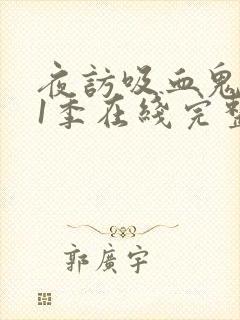 夜訪吸血鬼
1季在綫完整
郭廣宇